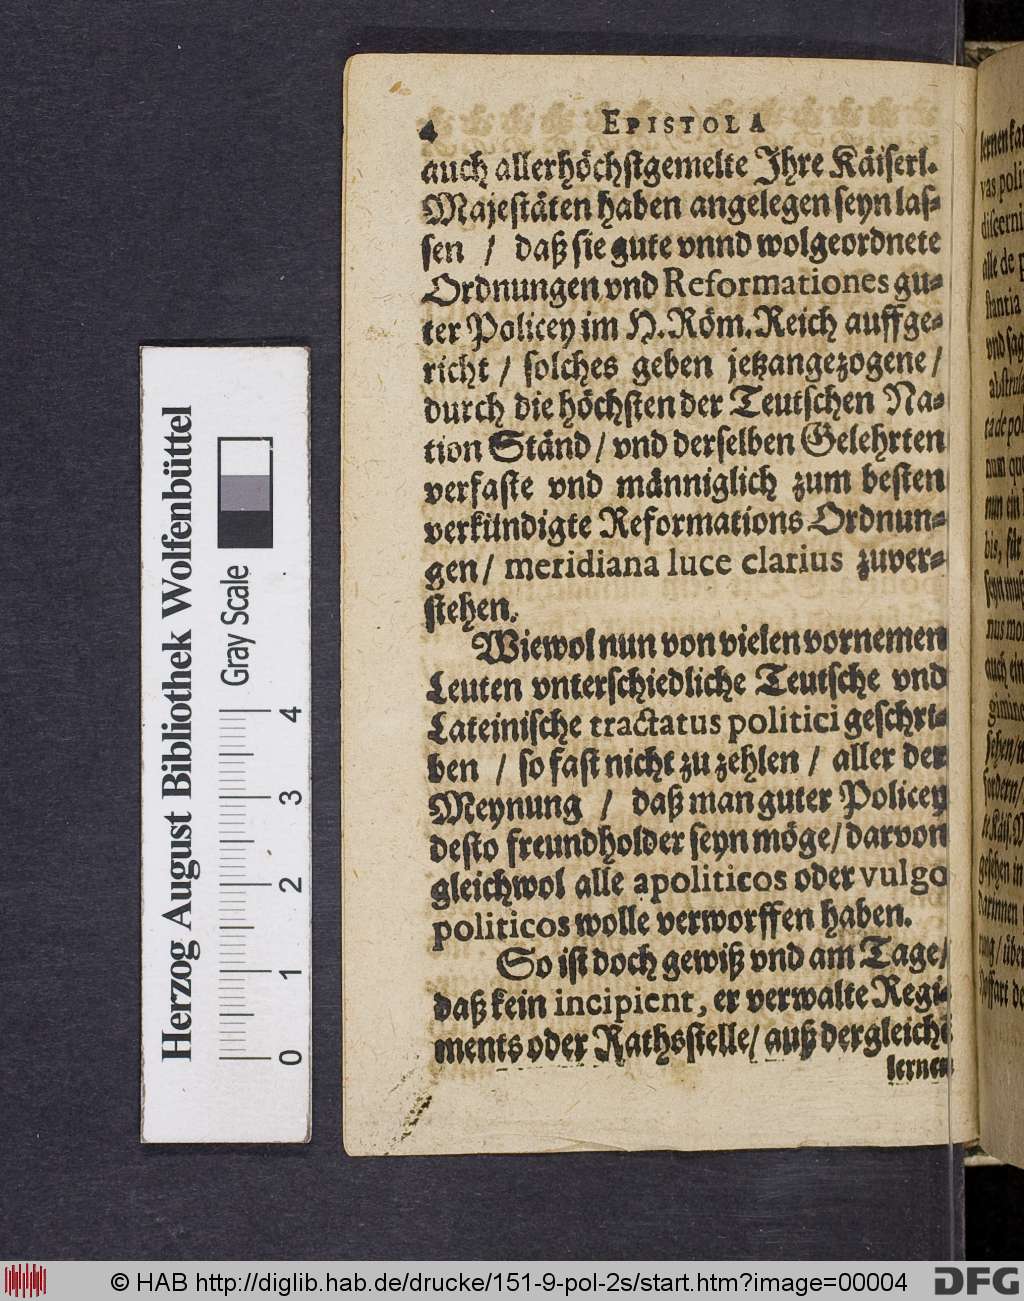 4 EPISTOLA
auch allerhöchstgemelte Ihre Käiserl.
Majestäten haben angelegen seyn las-
sen / daß sie gute vnnd wolgeordnete
Ordnungen vnd Reformationes gu-
ter Policey im H. Röm. Reich auffge-
richt / solches geben jetzangezogene /
durch die höchsten der Teutschen Na-
tion Ständ / vnd derselben Gelehrten
verfaste vnd männiglich zum besten
verkündigte Reformations Ordnun-
gen / meridiana luce clarius zuver-
stehen.
Wiewol nun von vielen vornemen
Leuten vnterschiedliche Teutsche vnd
Lateinische tractatus politici geschri-
ben / so fast nicht zu zehlen / aller der
Meynung / daß man guter Policey
desto freundholder seyn möge / darvon
gleichwol alle apoliticos oder vulgo
politicos wolle verworffen haben.
So ist doch gewiß vnd am Tage /
daß kein incipient, er verwalte Regi-
ments oder Rathsstelle / auß dergleichē
lernen
lernen
vas
discerni
alle de
stantia
vnd sag
ta de
num
nun ein
bis, für
nus
auch
sehen /
fordern /
gesehen in
darinnen
Herzog August Bibliothek Wolfenbüttel
Gray Scale
0 1 2 3 4
© HAB http://diglib.hab.de/drucke/151-9-pol-2s/start.htm?image=00004
DFG